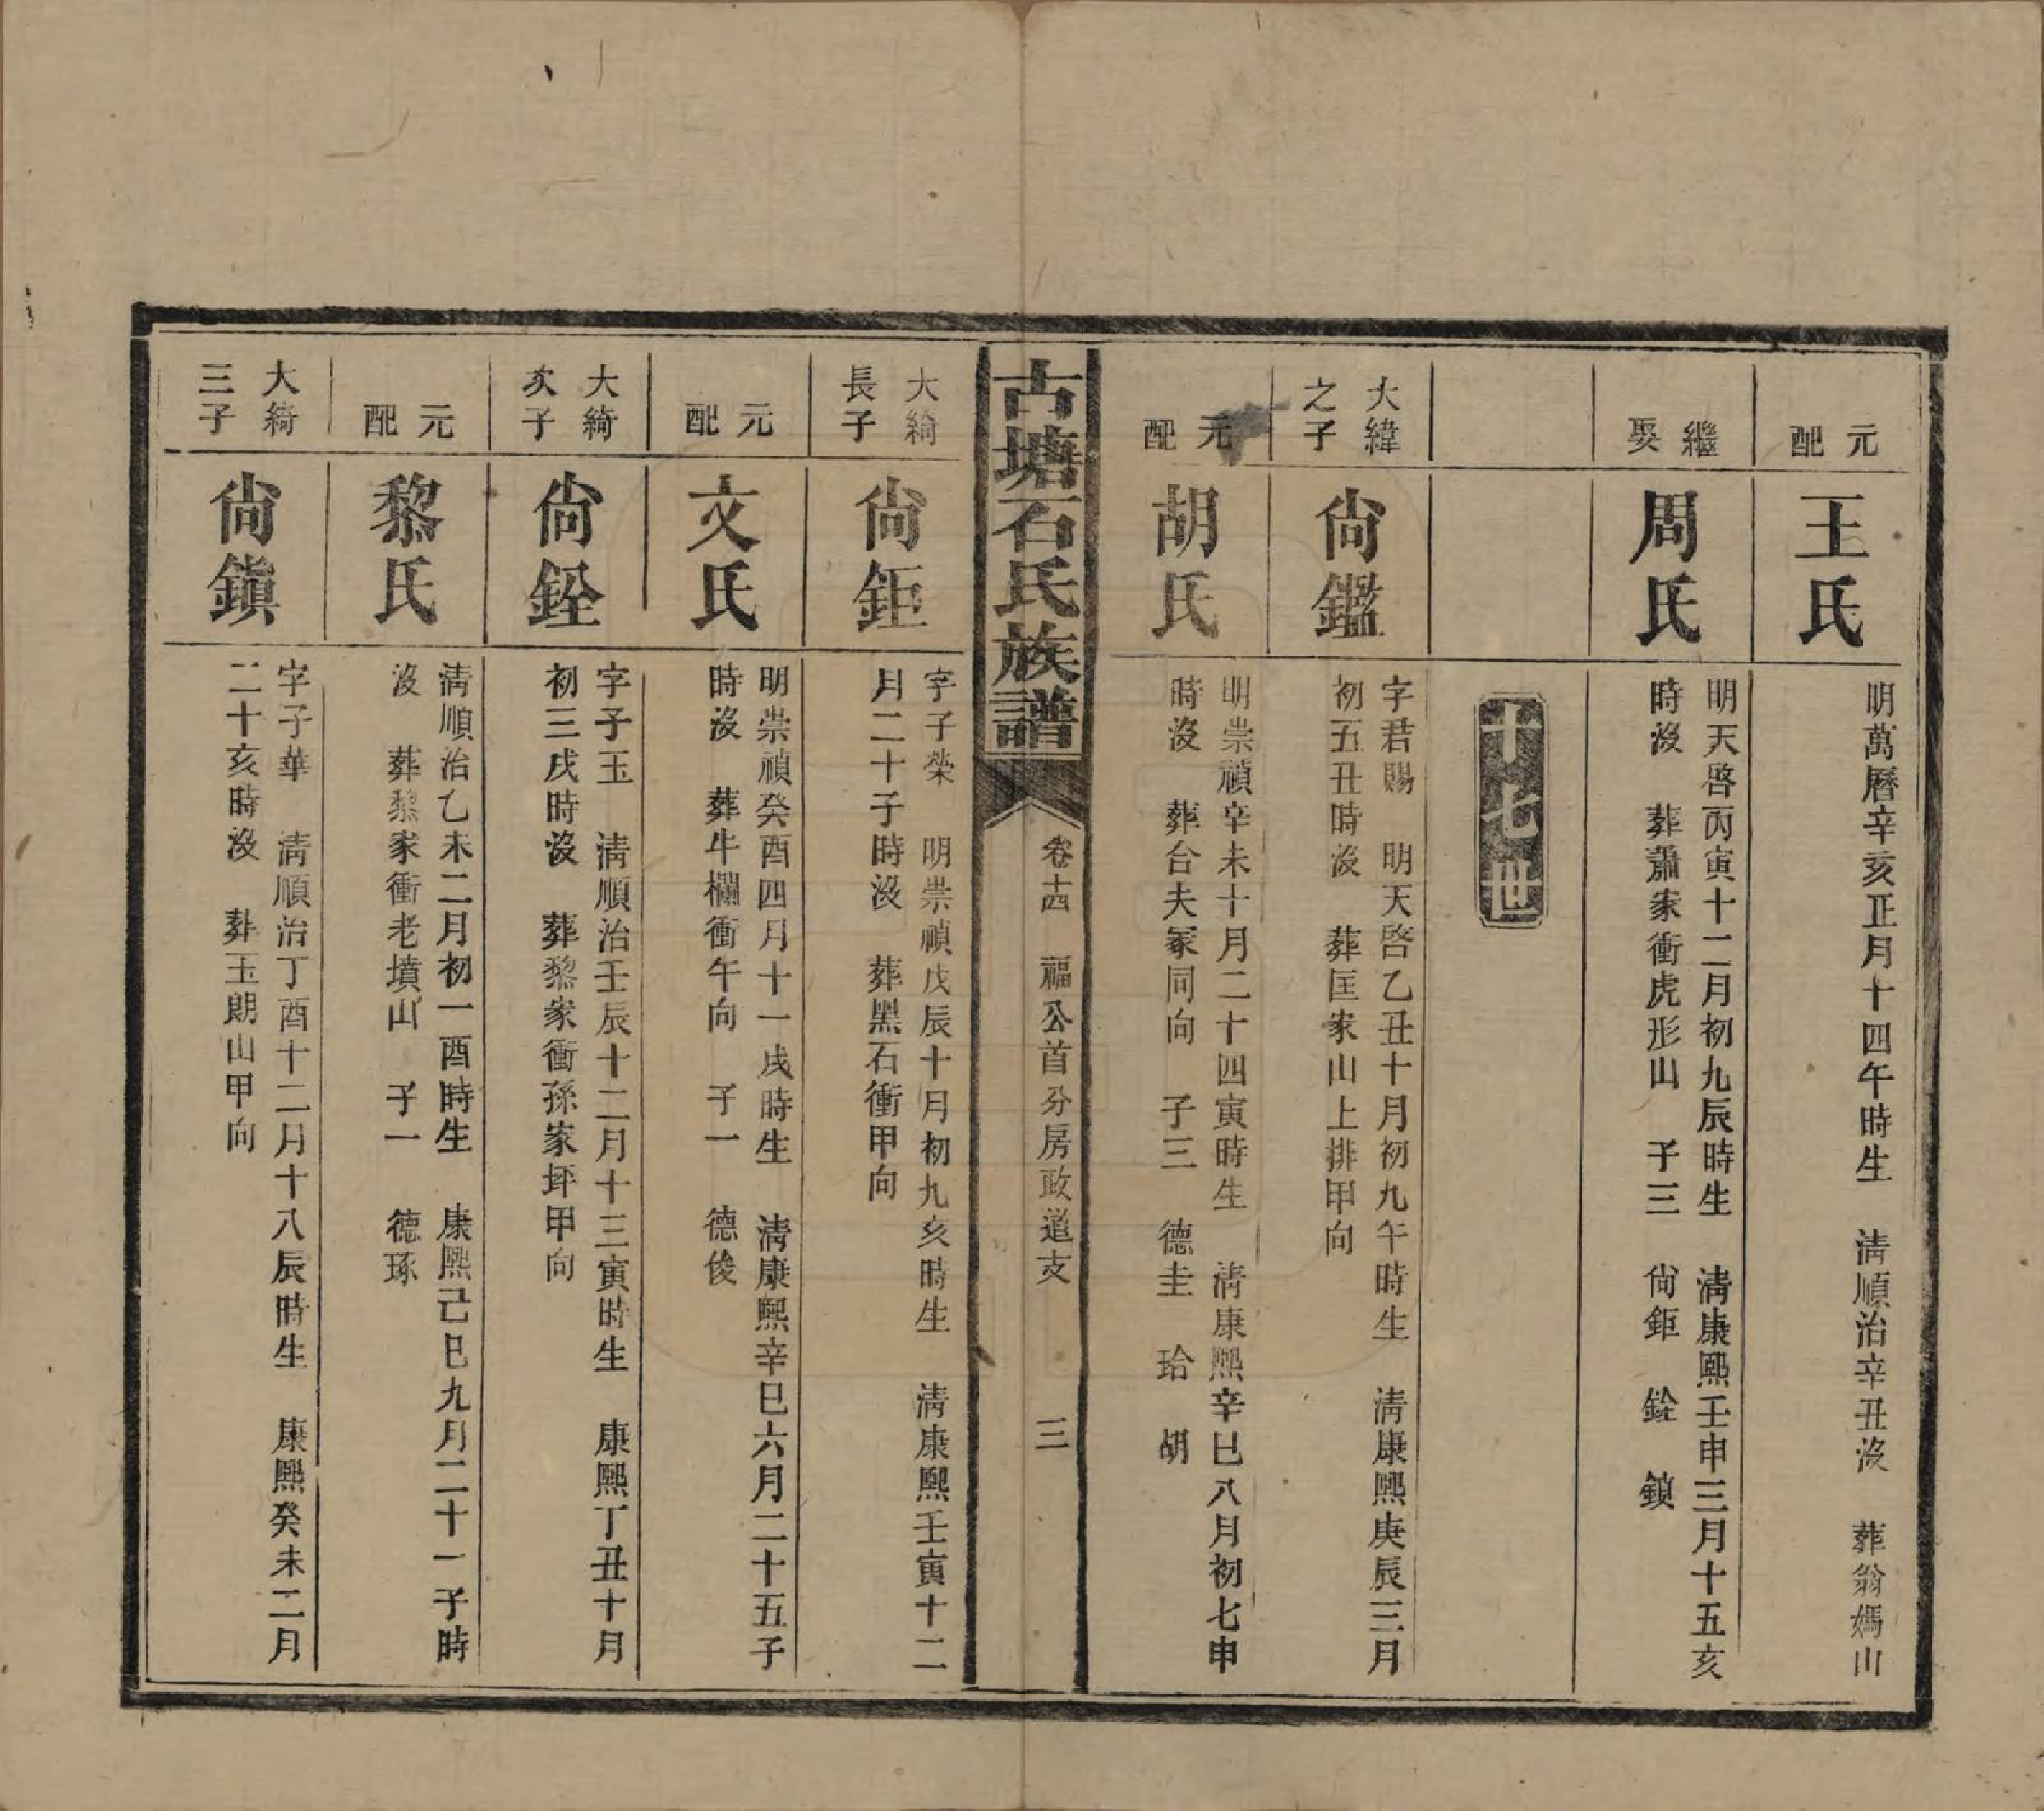 元配
王氏
明萬曆辛亥正月十四午時生 清順治辛丑沒 葬翁媽山
繼娶
周氏
明天啓丙寅十二月初九辰時生 清康熙壬申三月十五亥
時沒 葬蕭家衝虎形山 子三 尙鉅 銓 鎮
十七世
大緯
之子
尙鑑
字君賜 明天啓乙丑十月初九午時生 清康熙庚辰三月
初五丑時沒 葬匡家山上排甲向
元配
胡氏
明崇禎辛未十月二十四寅時生 清康熙辛巳八月初七申
時沒 葬台夫冢同向 子三 德圭 珆 胡
古塘石氏族譜
卷十四 福公首分房政道支 三
大綺
長子
尙鉅
字子榮 明崇禎戊辰十月初九亥時生 清康熙壬寅十二
月二十子時沒 葬黑石衝甲向
元配
文氏
明崇禎癸酉四月十一戌時生 清康熙辛巳六月二十五子
時沒 葬牛欄衝午向 子一 德俊
大綺
次子
尙銓
字子玉 清順治壬辰十二月十三寅時生 康熙丁丑十月
初三戌時沒 葬黎家衝孫家坪甲向
元配
黎氏
清順治乙未二月初一酉時生 康熙己巳九月二十一子時
沒 葬黎家衝老墳山 子一 德琢
大綺
三子
尙鎮
字子華 清順治丁酉十二月十八辰時生 康熙癸未二月
二十亥時沒 葬玉朗山甲向